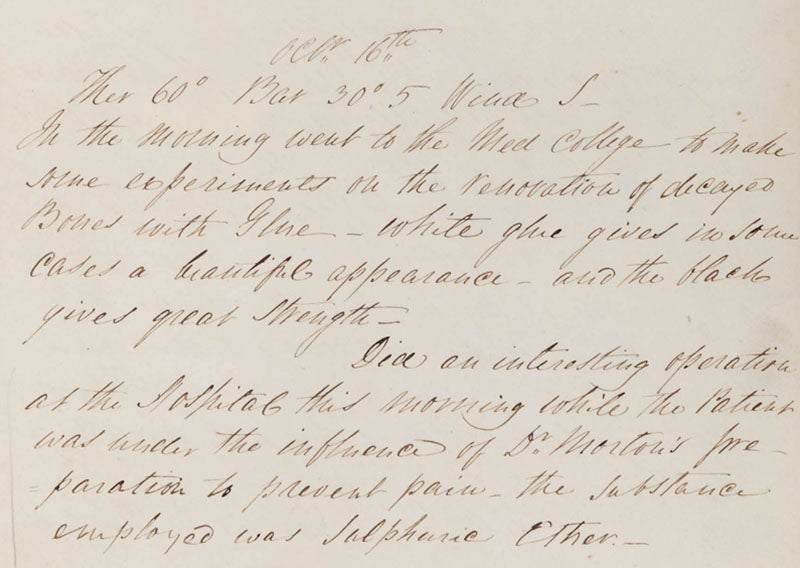 Octr. 16th
Ther 60° Bar 30°5 Wind S —
In the morning went to the Med College to make
some experiments on the renovation of decayed
Bones with Glue — white glue gives in some
cases a beautiful appearance — and the black
gives great strength —
Did an interesting operation
at the Hospital this morning while the Patient
was under the influence of Dr. Morton's pre-
=paration to prevent pain — the substance
employed was Sulphuric Ether. —